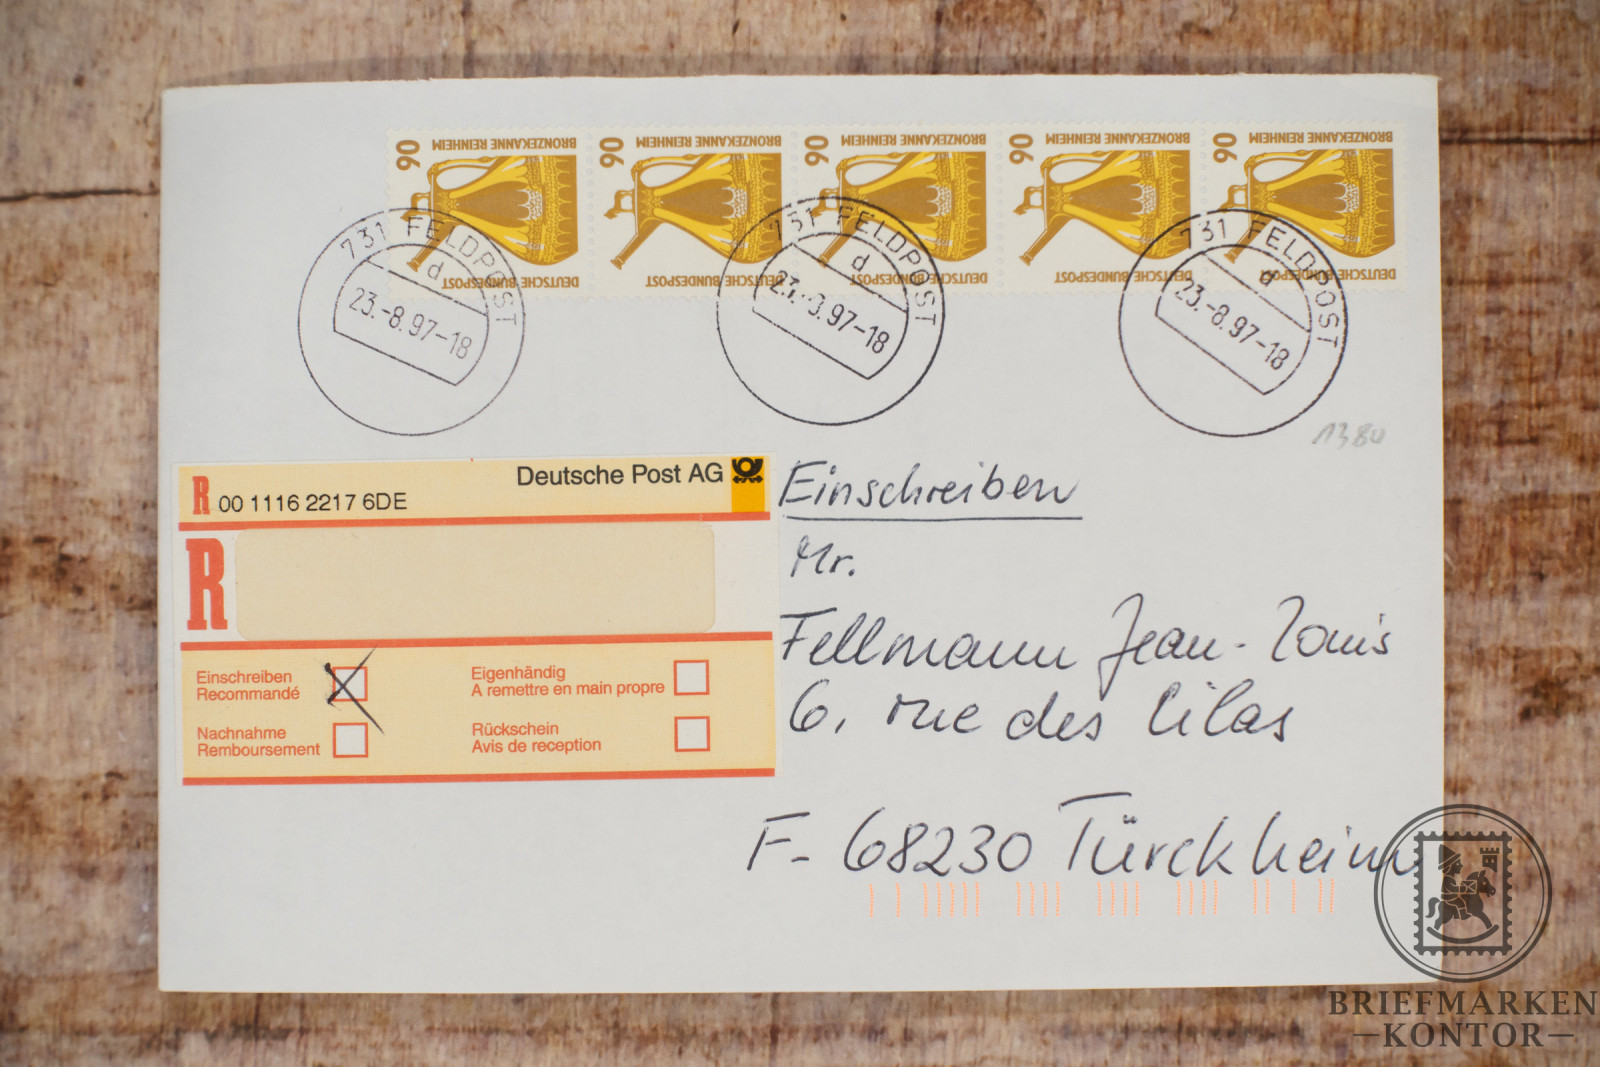 BRONZEKANNE REINHEIM
90
DEUTSCHE BUNDESPOST
BRONZEKANNE REINHEIM
90
DEUTSCHE BUNDESPOST
BRONZEKANNE REINHEIM
90
DEUTSCHE BUNDESPOST
BRONZEKANNE REINHEIM
90
DEUTSCHE BUNDESPOST
BRONZEKANNE REINHEIM
90
DEUTSCHE BUNDESPOST
731 FELDPOST
d
23.-8.97-18
731 FELDPOST
d
23.-8.97-18
731 FELDPOST
d
23.-8.97-18
1380
Deutsche Post AG
R 00 1116 2217 6DE
R
Einschreiben
Recommandé
Eigenhändig
A remettre en main propre
Nachnahme
Remboursement
Rückschein
Avis de reception
Einschreiben
Mr.
Fellmann Jean-Louis
6, rue des Lilas
F-68230 Türckheim
BRIEFMARKEN
KONTOR